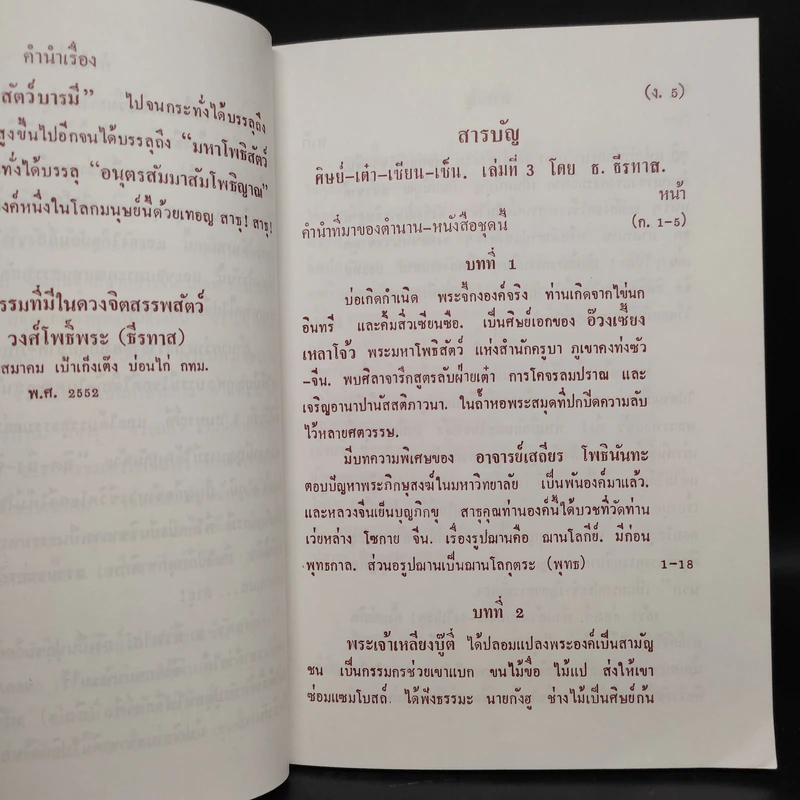 คำนำเรื่อง
สัตว์บารมี” ไปจนกระทั่งได้บรรลุถึง
สูงขึ้นไปอีกจนได้บรรลุถึง “มหาโพธิสัตว์
ทั่งได้บรรลุ “อนุตรสัมมาสัมโพธิญาณ”
งค์หนึ่งในโลกมนุษย์นี้ด้วยเทอญ สาธุ! สาธุ!
รรมที่มีในดวงจิตสรรพสัตว์
วงศ์โพธิ์พระ (ธีรทาส)
สมาคม เป้าเก็งเต๊ง บ่อนไก่ กทม.
พ.ศ. 2552
(ง. 5)
สารบัญ
ศิษย์-เต๋า-เซียน-เซ็น. เล่มที่ 3 โดย ธ. ธีรทาส.
หน้า
คำนำที่มาของตำนาน-หนังสือชุดนี้ (ก. 1-5)
บทที่ 1
บ่อเกิดกำเนิด พระจี้กงองค์จริง ท่านเกิดจากไข่นก
อินทรี และคิ้มสิ่วเซียนซือ. เป็นศิษย์เอกของ อ๊วงเซี้ยง
เหลาโจ้ว พระมหาโพธิสัตว์ แห่งสำนักครูบา ภูเขาคงท่งซัว
-จีน. พบศิลาจารึกสูตรลับฝ่ายเต๋า การโคจรลมปราณ และ
เจริญอานาปานัสสติภาวนา. ในถ้ำหอพระสมุดที่ปกปิดความลับ
ไว้หลายศตวรรษ.
มีบทความพิเศษของ อาจารย์เสถียร โพธินันทะ
ตอบปัญหาพระภิกษุสงฆ์ในมหาวิทยาลัย เป็นพันองค์มาแล้ว.
และหลวงจีนเย็นบุญภิกขุ สาธุคุณท่านองค์นี้ได้บวชที่วัดท่าน
เว่ยหล่าง โซกาย จีน. เรื่องรูปฌานคือ ฌานโลกีย์. มีก่อน
พุทธกาล. ส่วนอรูปฌานเป็นฌานโลกุตระ (พุทธ) 1-18
บทที่ 2
พระเจ้าเหลียงบู๊ตี้ ได้ปลอมแปลงพระองค์เป็นสามัญ
ชน เป็นกรรมกรช่วยเขาแบก ขนไม้ขื่อ ไม้แป ส่งให้เขา
ซ่อมแซมโบสถ์. ได้ฟังธรรมะ นายกังฮู ช่างไม้เป็นศิษย์ก้น